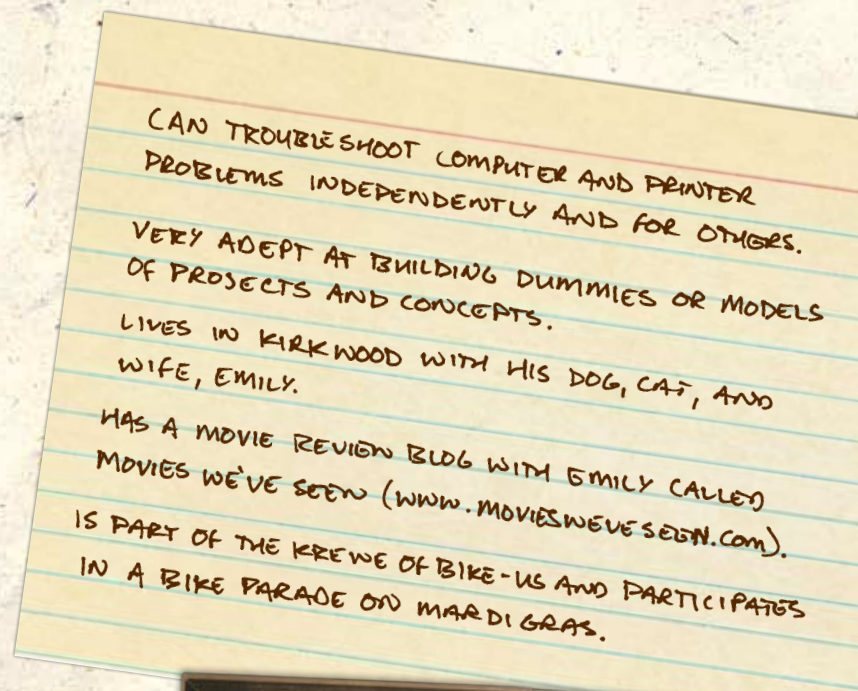 CAN TROUBLESHOOT COMPUTER AND PRINTER
PROBLEMS INDEPENDENTLY AND FOR OTHERS.
VERY ADEPT AT BUILDING DUMMIES OR MODELS
OF PROJECTS AND CONCEPTS.
LIVES IN KIRKWOOD WITH HIS DOG, CAT, AND
WIFE, EMILY.
HAS A MOVIE REVIEW BLOG WITH EMILY CALLED
MOVIES WE'VE SEEN (WWW.MOVIESWEVESEEN.COM).
IS PART OF THE KREWE OF BIKE-US AND PARTICIPATES
IN A BIKE PARADE ON MARDI GRAS.